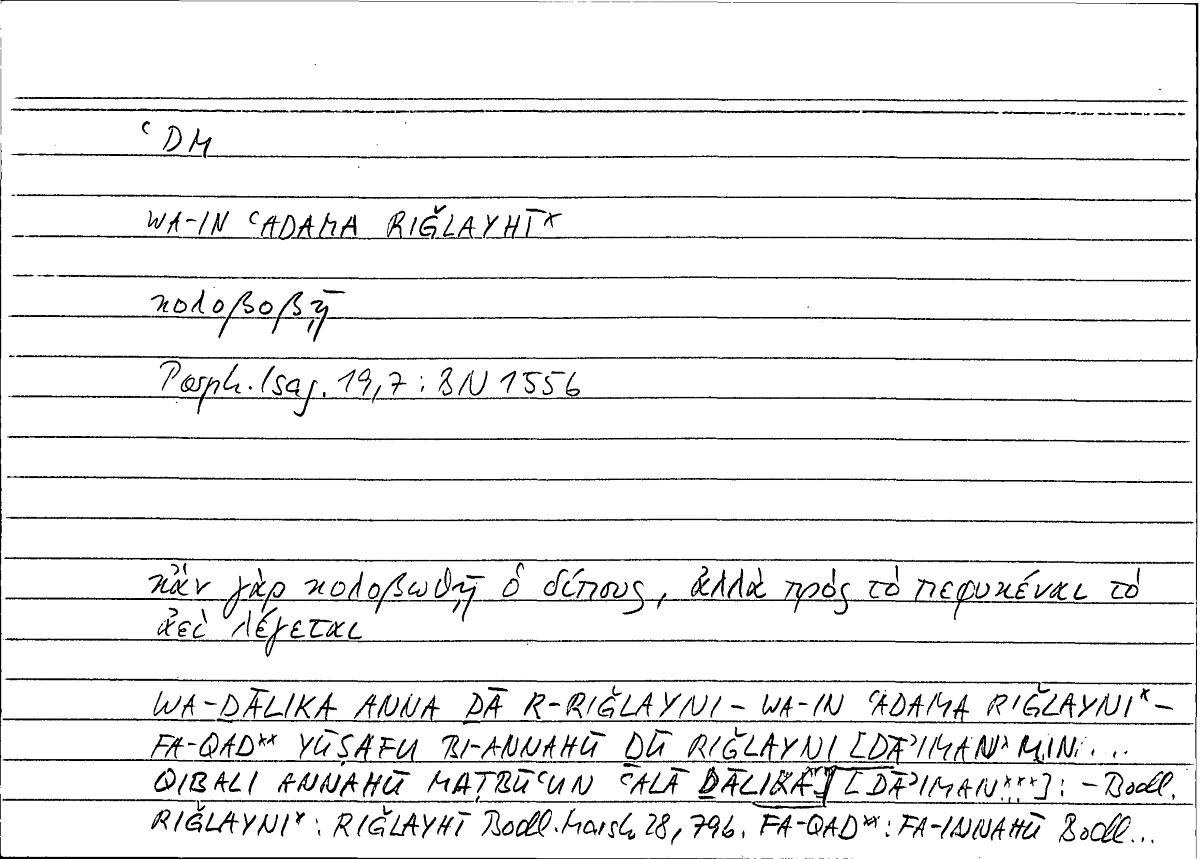 ʿDM
WA-IN ʿADAMA RIǦLAYHĪ*
κολοβοβῇ
Porph. Isag. 19,7: BN 1556
κἂν γὰρ κολοβωθῇ ὁ δίπους, ἀλλὰ πρὸς τὸ πεφυκέναι τὸ
ἀεὶ λέγεται
WA-ḎĀLIKA ANNA ḎĀ R-RIǦLAYNI – WA-IN ʿADAMA RIǦLAYNI* –
FA-QAD** YŪṢAFU BI-ANNAHŪ ḎŪ RIǦLAYNI [DĀʾIMAN* MIN ...
QIBALI ANNAHŪ MAṬBŪʿUN ʿALĀ ḎĀLIKA] [DĀʾIMAN***]: – Bodl.
RIǦLAYNI*: RIǦLAYHĪ Bodl. Marsh 28, 79b. FA-QAD**: FA-INNAHŪ Bodl...